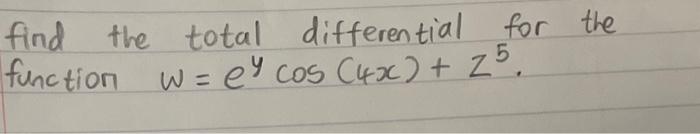 find the total differential for the
function w = e^y cos (4x) + z^5.